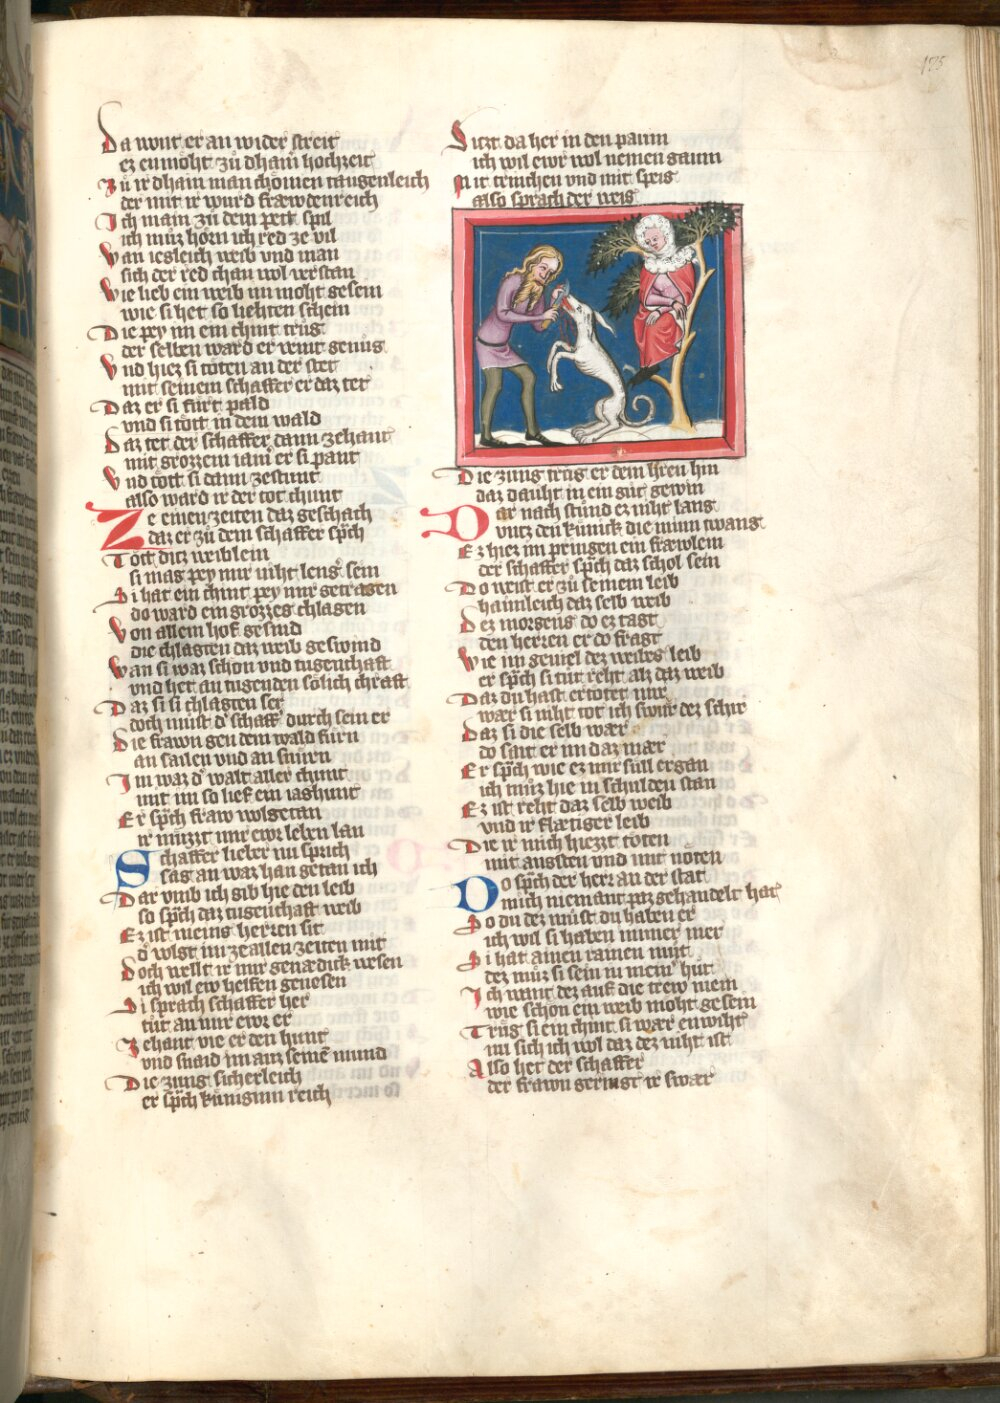 185
Da wont er an wider streit
ez enmoht zů dhain hochzeit
Zů ir dhain man chömen taugenleich
der mit ir wurd fræwdenreich
Ich main zů dem pett spil
ich můz hörn ich red ze vil
Wan iegleich weib vnd man
sich der red chan wol verstan
Wie lieb ein weib im moht gesein
wie si het so liehten schein
Die pey im ein chint trůg
der selben ward er reint genůg
Vnd hiez si töten an der stet
mit seinem schaffer er daz tet
Daz er si fürt pald
vnd si tött in dem wald
Daz tet der schaffer dann zehant
mit grozzem iamer er si pant
Vnd tött si dann zestunt
also ward ir der tot chunt
Ze einen zeiten daz geschach
daz er zů dem schaffer spch
Tött ditz weiblein
si mag pey mir niht leng sein
Si hat ein chint pey mir getragen
do ward ein grozzes chlagen
Von allem hof gesind
die chlagten daz weib geswind
Wan si waz schön vnd tugenthaft
vnd het an tugenden sölich chraft
Daz si si chlagten ser
doch můst d schaff durch sein er
Die frawn gen dem wald fürn
an sailen vnd an snürn
Im waz d walt aller chunt
mit im so lief ein iaghunt
Er spch fraw wolgetan
ir müzzt mir ewr leben lan
Schaffer lieber nu sprich
sag an waz han getan ich
Dar vmb ich gib hie den leib
so spch daz tugenthaft weib
Ez ist meins herren sit
d volgt im ze allen zeiten mit
Doch wellt ir mir genædick wesen
ich wil ew helfen genesen
Si sprach schaffer her
tůt an mir ewr er
Zehant vie er den hunt
vnd snaid im auz seinē mund
Die zung sicherleich
er spch küniginn reich
Sitzt da her in den paum
ich wil ewr wol nemen gaum
Mit trinchen vnd mit speis
also sprach der weis
Die zung trůg er dem hren hin
daz dauht in ein gůt gewin
Dar nach stůnd ez niht lang
vntz den künick die minn twang
Ez hiez im pringen ein fræwlein
der schaffer spch daz schol sein
Do weist er zů seinem leib
haimleich daz selb weib
Dez morgens do ez tagt
den herren er do fragt
Wie im geuiel dez weibes leib
er spch si tůt reht als daz weib
Daz du hast ertötet mir
wær si niht tot ich swůr dez schir
Daz si die selb wær
do sait er im daz mær
Er spch wie ez mir süll ergan
ich můz hie in schulden stan
Ez ist reht daz selb weib
vnd ir flætiger leib
Die ir mich hiezzt töten
mit angsten vnd mit nöten
Do spch der herr an der stat
mich niemant paz gehandelt hat
So du dez můst du haben er
ich wil si haben immer mer
Si hat ainen rainen můt
dez můz si sein in meinr hůt
Ich want dez auf die trew mein
wie schön ein weib moht gesein
Trůg si ein chint si wær enwiht
nu sich ich wol daz dez niht ist
Also het der schaffer
der frawn geringt ir swær